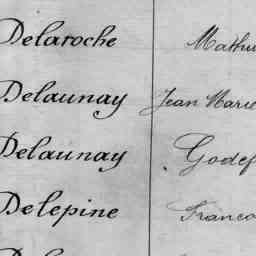 Delaroche Mathu
Delaunay Jean Marie
Delaunay Godef
Delepine Franco